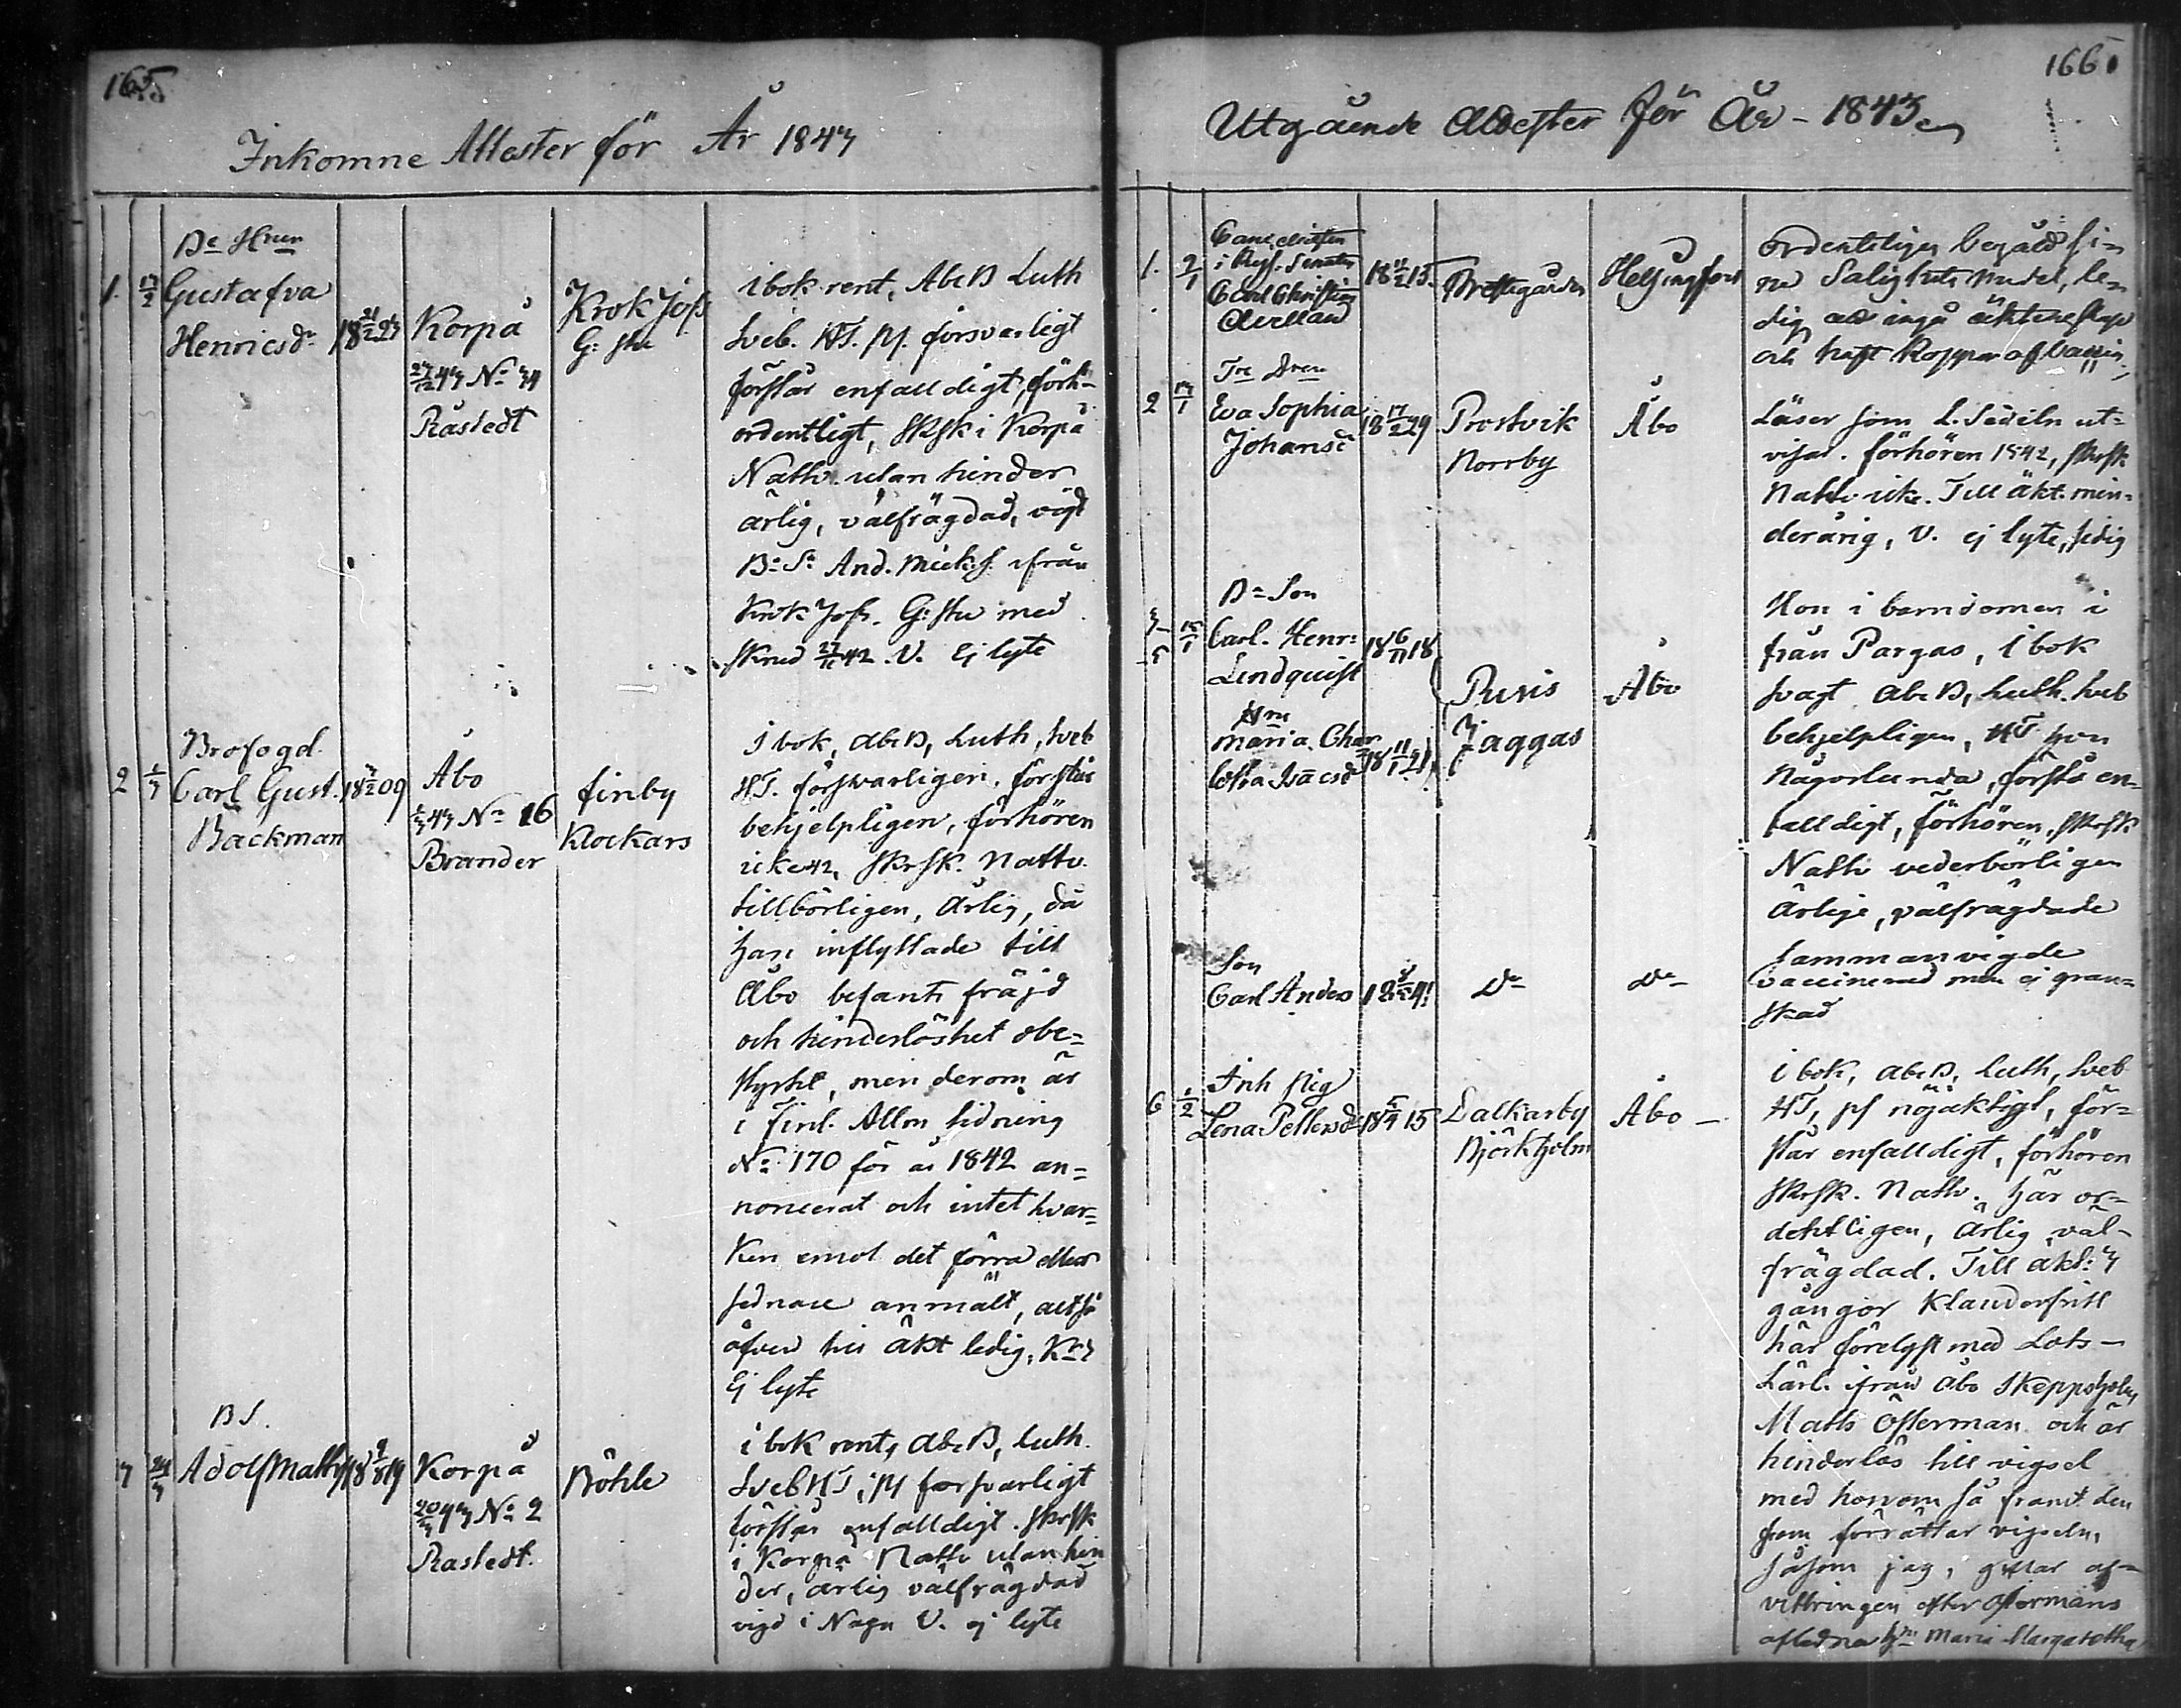 165
Inkomne Attester för År 1843
1. 17/2
De Hrun
Gustafva
Henricsdr
18 21/2 23
Korpå
27/12 43 No 34
Råstedt
Krok Jofs
G: stu
i bok rent, Abc B Luth
Sveb. HT. ps. försvarligt
förstår enfalldigt, förh-
ordentligt, Skrsk i Korpå
Nattv. utan hinder
ärlig, välfrägdad, vigd
B: S: And. Micks. ifrån
Krok Jofs. G: stu med
Skrud 27/11 42. V. Ej lyte
2
Brofogd
Carl Gust.
Backman
Åbo
43 No 16
Brander
finby
Klockars
I bok, Abc B, Luth, Sveb
HT. försvarligen, förstår
behjelpligen, förhören
icke 42, Skrsk. Nattv.
tillbörligen, Ärlig, då
han inflyttade till
Åbo befants fräjd
och hinderlöshet obe=
styrkt, men derom är
i Finl. Allm tidning
No 170 för år 1842 an=
noncerat och intet hvar=
ken emot det förra eller
sednare anmält, altså
äfven till äkt ledig,
Ej lyte
3
B S.
Adolf Mathss
18 9/8 19
Korpå
20/3 43 No 2
Rastedt.
Böhle
i bok rent, Abc B, Luth.
Sveb HT, ps försvarligt
förstår enfalldigt. Skrsk
i Korpå Nattv utan hin
der, ärlig välfrägdad
vigd i Nagu V. ej lyte
166
Utgående Attester för År - 1843
1. 9/1
i Kejs. Senaten
Carl Christian
18 11/2 15.
Prestegården
Helsingfors
ordentligen begådt si-
ne Salighets medel, le-
dig att ingå äktenskap
och haft koppor af vaccin.
2 13/1
Tre Dren
Eva Sophia
Johansdr
18 17/2 29
Prostvik
Norrby
Åbo
Läser som L. Sedeln ut=
visar. förhören 1842, Skrsk
Nattv icke. Till äkt. min=
derårig, V. ej lyte, sedig
3-5 15/1
Be Son
Carl. Henr:
Lindquist
18 6/11 18
Hru
Maria Char
lotta Isacsdr
18 11/1 21
Pusis
Jaggas
Åbo
Hon i barndomen i
från Pargas, i bok
svagt Abc B, Luth. Sveb
behjelpligen, HT hon
någorlunda, förstå en-
falldigt, förhören, Skrsk
Nattv vederbörligen
Ärlige, välfrägdade
sammanvigde
Son
Carl Anders
Do
Do
Vaccinerad men ej gran=
skad
6 1/2
Inh pig
Lena Pettersdr
18 5/4 15
Dalkarby
Björkholm
Åbo -
i bok, Abc B, Luth, Sveb
HT, ps nöjaktigt, för=
står enfalldigt, förhören
Skrsk. Nattv. här or=
dentligen, Ärlig, väl-
frägdad. Till äkt: 3
gångor klanderfritt
här förelyst med Lots-
Lärl. ifrån Åbo Skeppsholm
Matts Österman och är
hinderlös till vigsel
med honom så framt den
som förrättar vigseln,
såsom jag, gillar af=
vittringen efter Östermans
aflidna Maria Margaretha